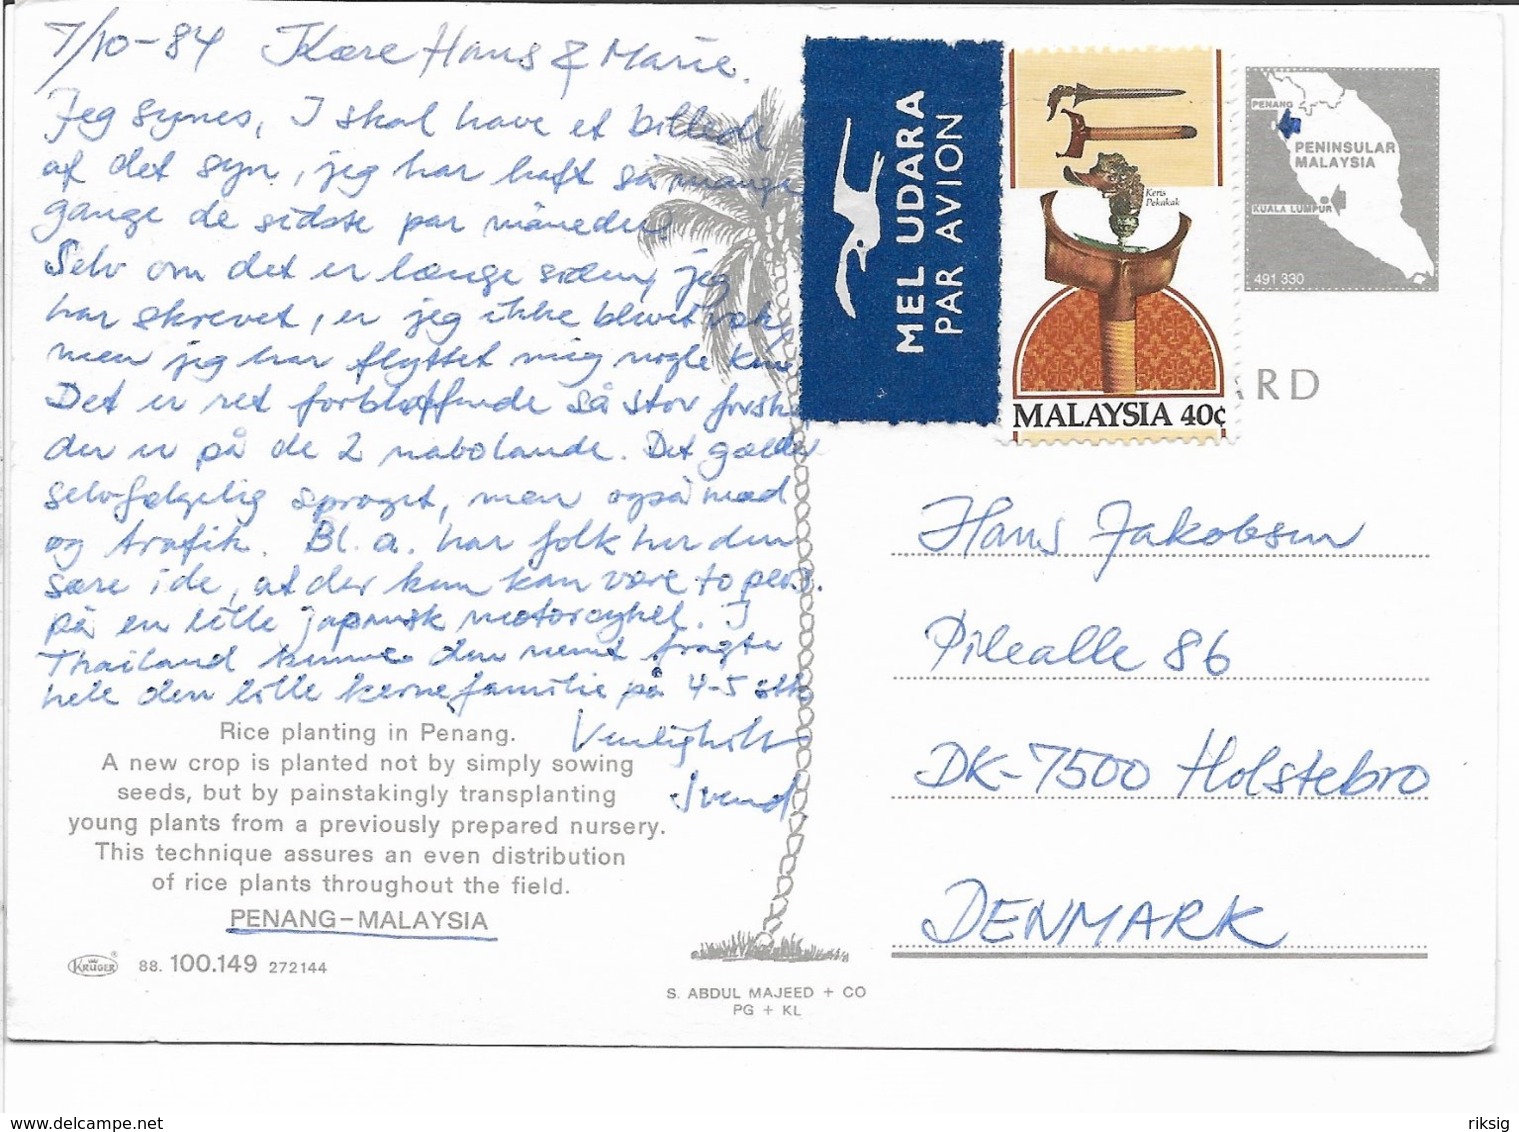 7/10-84 Kære Hans & Marie.
Jeg synes, I skal have et billede
af det syn, jeg har haft så mange
gange de sidste par måneder.
Selv om det er længe siden, jeg
har skrevet, er jeg ikke blevet væk,
men jeg har flyttet mig nogle km.
Det er ret forbløffende så stor forsk.
der er på de 2 nabolande. Det gælder
selvfølgelig sproget, men også mad
og trafik. Bl.a. har folk her den
sære ide, at der kun kan være to pers.
på en lille japansk motorcykel. I
Thailand kunne den nemt fragte
hele den lille kernefamilie på 4-5 stk.
Venlig hilsen
Svend.
Rice planting in Penang.
A new crop is planted not by simply sowing
seeds, but by painstakingly transplanting
young plants from a previously prepared nursery.
This technique assures an even distribution
of rice plants throughout the field.
PENANG-MALAYSIA
KRÜGER
88. 100.149 272144
S. ABDUL MAJEED + CO
PG + KL
MEL UDARA
PAR AVION
Keris
Pekakak
MALAYSIA 40¢
PENANG
PENINSULAR
MALAYSIA
KUALA LUMPUR
491 330
ARD
Hans Jakobsen
Pilealle 86
DK-7500 Holstebro
DENMARK
www.delcampe.net
riksig